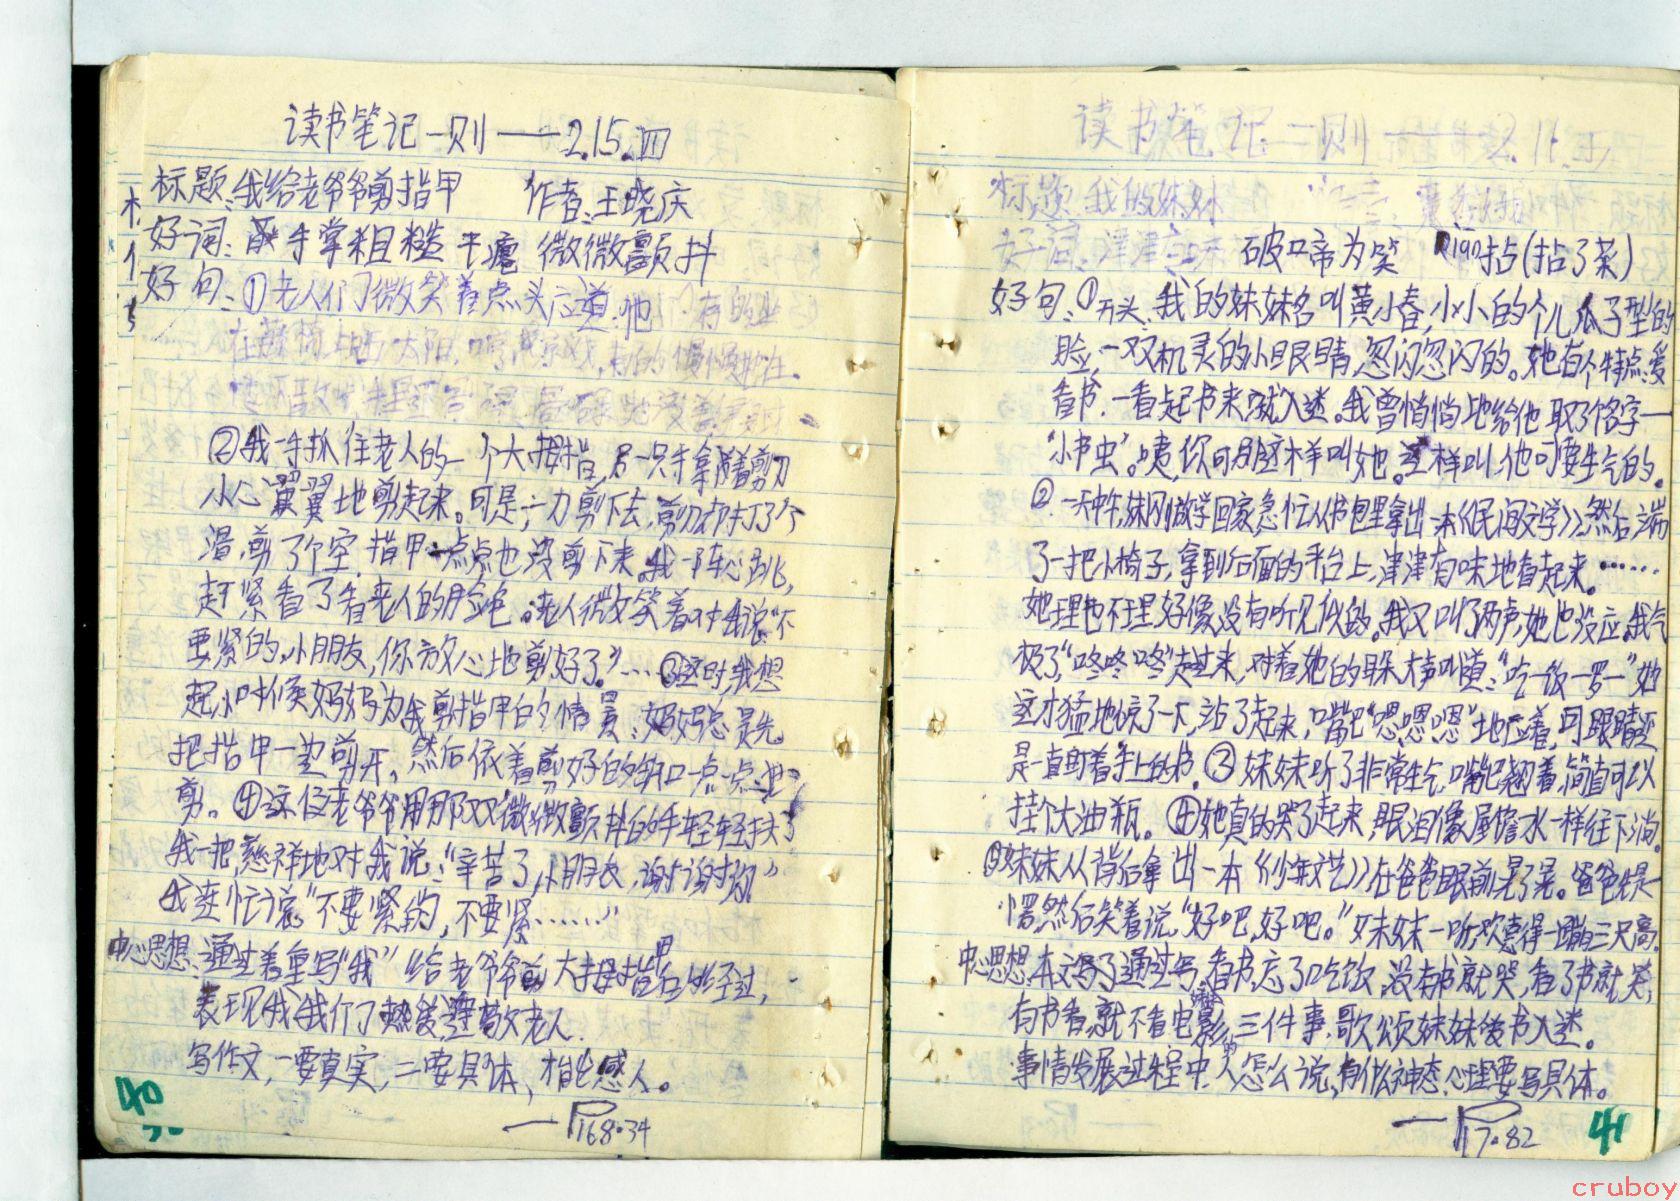 读书笔记一则——2.15.四
标题:我给老爷爷剪指甲 作者:王晓庆
好词: 手掌粗糙 干瘪 微微颤抖
好句:①老人们微笑着点头应道:他
在 太阳,
②我一手抓住老人的一个大拇指,另一只手拿着剪刀
小心翼翼地剪起来。可是,一刀剪下去,剪刀却打了个
滑,剪了个空,指甲一点点也没剪下来。我一阵心跳,
赶紧看了看老人的脸色。老人微笑着对我说“不
要紧的,小朋友,你放心地剪好了。”……③这时,我想
起小时候妈妈为我剪指甲的情景:妈妈总是先
把指甲一边剪开,然后依着剪好的缺口一点一点地
剪。④这位老爷爷用那双微微颤抖的手轻轻扶了
我一把,慈祥地对我说:“辛苦了,小朋友,谢谢你”
我连忙说“不要紧的,不要紧……”
中心思想:通过着重写“我”给老爷爷剪大拇指甲的经过,
表现我们了热爱尊敬老人.
写作文,一要真实,二要具体,才能感人。
40
——P168.34
读书笔记一则——2.16.五
标题:我的妹妹
好词:津津有味 破口啼为笑 nian拈(拈了菜)
好句:①开头,我的妹妹名叫黄小春,小小的个儿瓜子型的
脸,一双机灵的小眼睛,忽闪忽闪的。她有个特点:爱
看书.一看起书来,就入迷。我曾悄悄地给他取了个名字—
“小书虫”。咦,你可别这样叫她。这样叫,他可要生气的。
②.一天中午,妹刚放学回家,急忙从书包里拿出一本《民间文学》,然后端
了一把小椅子,拿到后面的平台上,津津有味地看起来。……
她理也不理,好像没有听见似的。我又叫了两声,她也没应。我气
极了,“咚咚咚”走过来,对着她的耳朵大声叫道:“吃—饭—罗—”她
这才猛地惊了一下,站了起来,嘴巴“嗯,嗯,嗯”地应着,可眼睛还
是一直盯着手上的书。③妹妹听了非常生气,嘴巴翘着,简直可以
挂个大油瓶。④她真的哭了起来,眼泪像屋檐水一样往下淌。
⑤妹妹从背后拿出一本《少年文艺》在爸爸眼前晃了晃。爸爸先是一
愣然后笑着说,“好吧,好吧。”妹妹一听,欢喜得一蹦三尺高。
中心思想:本文写了通过写,看书忘了吃饭,没有书就哭,看了书就笑,
有书看,就不看电影,三件事,歌颂妹妹读书入迷。
事情发展过程中,人的怎么说,有什么神态,心理要写具体。
——P17.82
41
cruboy